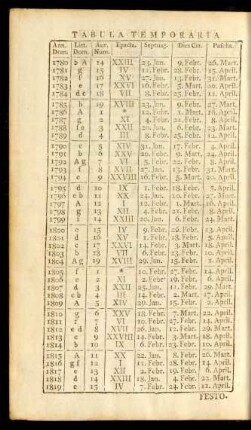 TABULA TEMPORARIA
Ann. Dom. Litt. Dom. Aur. Num. Epacta. Septuag. Dies Cin. Pascha.
1780 b A 14 XXIII 23. Jan. 9. Febr. 26. Mart.
1781 g 15 IV 11. Febr. 28. Febr. 15. April.
1782 f 16 XV 27. Jan. 13. Febr. 31. Mart.
1783 e 17 XXVI 16. Febr. 5. Mart. 20. April.
1784 d c 18 VII 8. Febr. 25. Febr. 11. April.
1785 b 19 XVIII 23. Jan. 9. Febr. 27. Mart.
1786 A 1 * 12. Febr. 1. Mart. 16. April.
1787 g 2 XI 4. Febr. 21. Febr. 8. April.
1788 f e 3 XXII 20. Jan. 6. Febr. 23. Mart.
1789 d 4 III 8. Febr. 25. Febr. 12. April.
1790 c 5 XIV 31. Jan. 17. Febr. 4. April.
1791 b 6 XXV 20. Febr. 9. Mart. 24. April.
1792 A g 7 VI 5. Febr. 22. Febr. 8. April.
1793 f 8 XVII 27. Jan. 13. Febr. 31. Mart.
1794 e 9 XXVIII 16. Febr. 5. Mart. 20. April.
1795 d 10 IX 1. Febr. 18. Febr. 5. April.
1796 c b 11 XX 24. Jan. 10. Febr. 27. Mart.
1797 A 12 I 12. Febr. 1. Mart. 16. April.
1798 g 13 XII 4. Febr. 21. Febr. 8. April.
1799 f 14 XXIII 20. Jan. 6. Febr. 24. Mart.
1800 e 15 IV 9. Febr. 26. Febr. 13. April.
1801 d 16 XV 1. Febr. 18. Febr. 5. April.
1802 c 17 XXVI 14. Febr. 3. Mart. 18. April.
1803 b 18 VII 6. Febr. 23. Febr. 10. April.
1804 A g 19 XVIII 29. Jan. 15. Febr. 1. April.
1805 f 1 * 10. Febr. 27. Febr. 14. April.
1806 e 2 XI 2. Febr. 19. Febr. 6. April.
1807 d 3 XXII 25. Jan. 11. Febr. 29. Mart.
1808 c b 4 III 14. Febr. 2. Mart. 17. April.
1809 A 5 XIV 29. Jan. 15. Febr. 2. April.
1810 g 6 XXV 18. Febr. 7. Mart. 22. April.
1811 f 7 VI 10. Febr. 27. Febr. 14. April.
1812 e d 8 XVII 26. Jan. 12. Febr. 29. Mart.
1813 c 9 XXVIII 14. Febr. 3. Mart. 18. April.
1814 b 10 IX 6. Febr. 23. Febr. 10. April.
1815 A 11 XX 22. Jan. 8. Febr. 26. Mart.
1816 g f 12 I 11. Febr. 28. Febr. 14. April.
1817 e 13 XII 2. Febr. 19. Febr. 6. April.
1818 d 14 XXIII 18. Jan. 4. Febr. 22. Mart.
1819 c 15 IV 7. Febr. 24. Febr. 11. April.
FESTO.